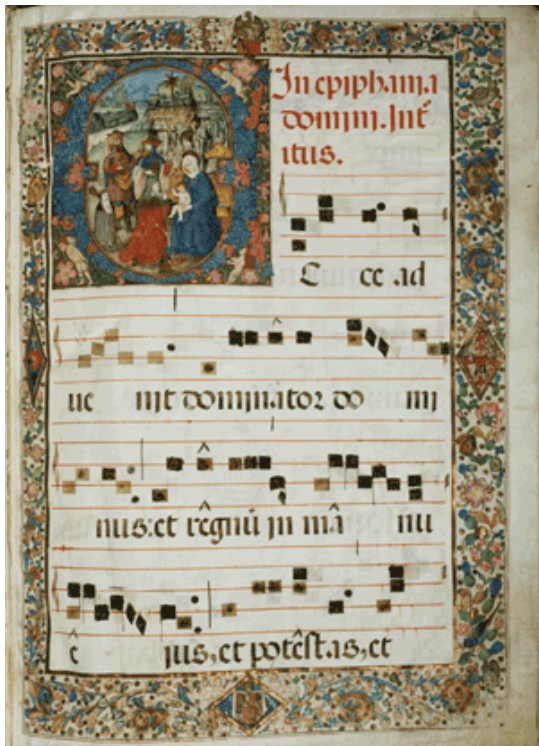 In epiphania
domini. Int̃
itus.
E cce ad
ue nit dominator do mi
nus: et rêgnũ in mâ nu
ê jus, et potêstas, et